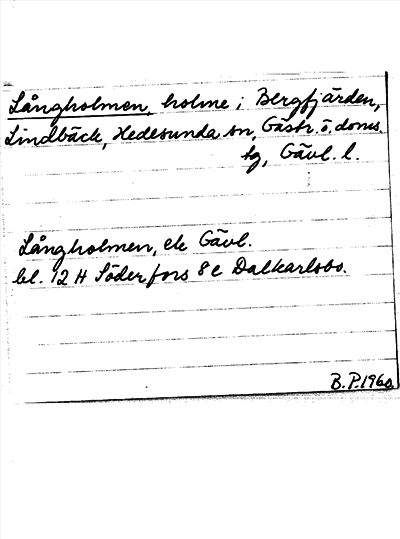 Långholmen, holme i Bergfjärden,
Lindbäck, Hedesunda sn, Gästr. ö. doms.
tg, Gävl. l.
Långholmen, ek Gävl.
bl. 12 H Söderfors 8 c Dalkarlsbo.
B.P. 1960